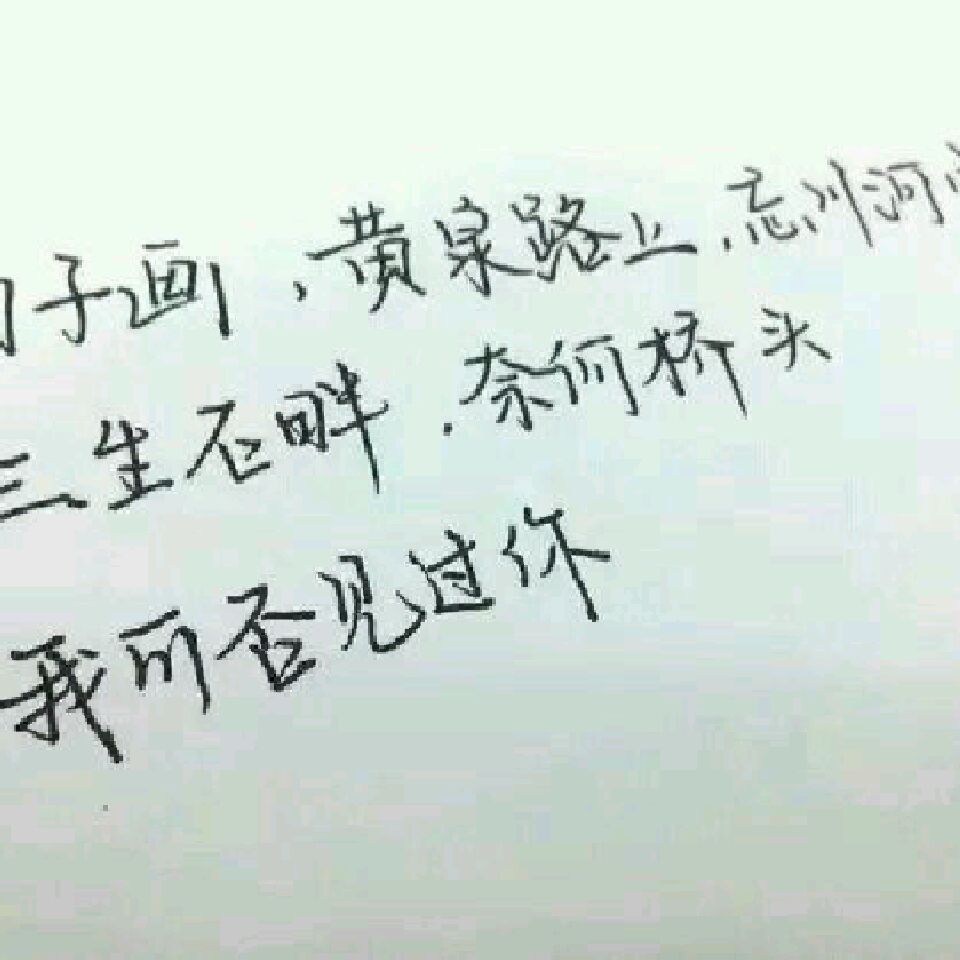 子画，黄泉路上，忘川河
三生石畔，奈何桥头
我可否见过你